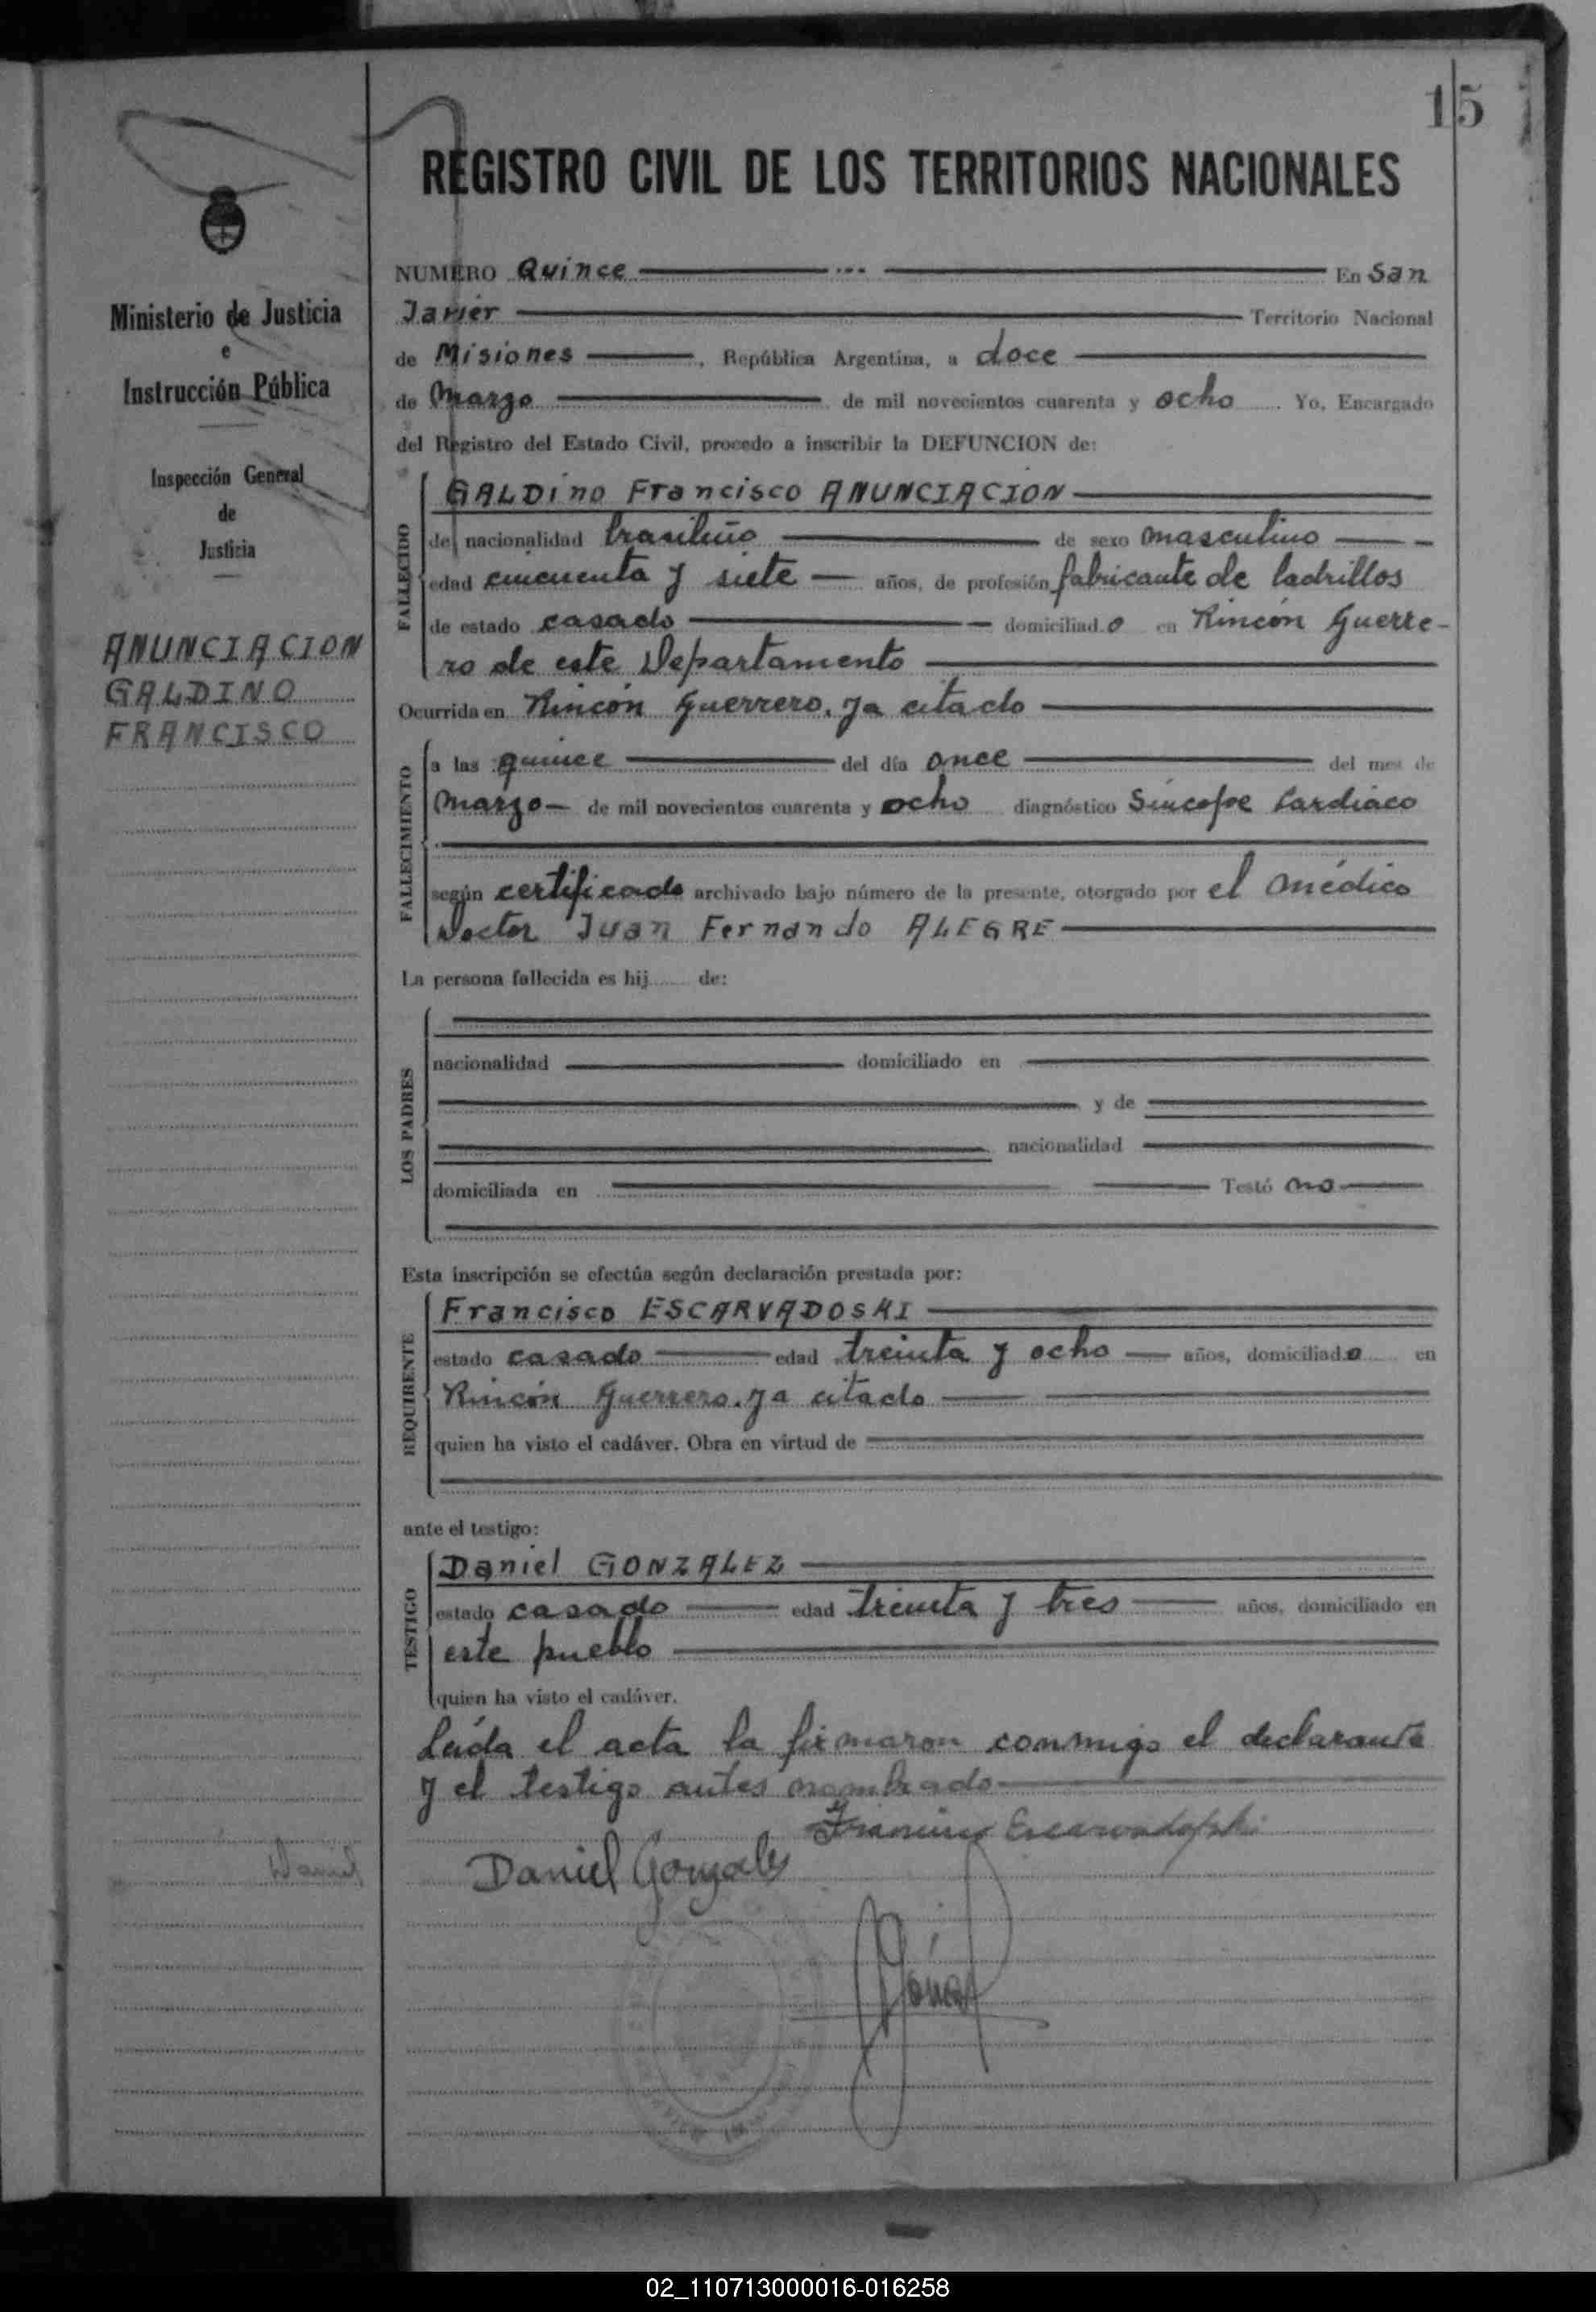 15
REGISTRO CIVIL DE LOS TERRITORIOS NACIONALES
Ministerio de Justicia
e
Instrucción Pública
Inspección General
de
Justicia
ANUNCIACION
GALDINO
FRANCISCO
NUMERO Quince En San
Javier Territorio Nacional
de Misiones, República Argentina, a doce
de Marzo de mil novecientos cuarenta y ocho Yo, Encargado
del Registro del Estado Civil, procedo a inscribir la DEFUNCION de:
FALLECIDO
GALDino Francisco ANUNCIACION
de nacionalidad brasileño de sexo masculino
edad cincuenta y siete años, de profesión fabricante de ladrillos
de estado casado domiciliado en Rincón Guerre-
ro de este Departamento
Ocurrida en Rincón Guerrero, ya citado
FALLECIMIENTO
a las quince del día once del mes de
Marzo de mil novecientos cuarenta y ocho diagnóstico Síncope Cardíaco
según certificado archivado bajo número de la presente, otorgado por el médico
Doctor Juan Fernando ALEGRE
La persona fallecida es hij...... de:
LOS PADRES
nacionalidad domiciliado en
y de
nacionalidad
domiciliada en Testó no
Esta inscripción se efectúa según declaración prestada por:
REQUIRENTE
Francisco ESCARVADOSKI
estado casado edad treinta y ocho años, domiciliado en
Rincón Guerrero, ya citado
quien ha visto el cadáver. Obra en virtud de
ante el testigo:
TESTIGO
Daniel GONZALEZ
estado casado edad treinta y tres años, domiciliado en
este pueblo
quien ha visto el cadáver.
Leída el acta la firmaron conmigo el declarante
y el testigo antes nombrado
Daniel
Daniel Gonzales
02_110713000016-016258